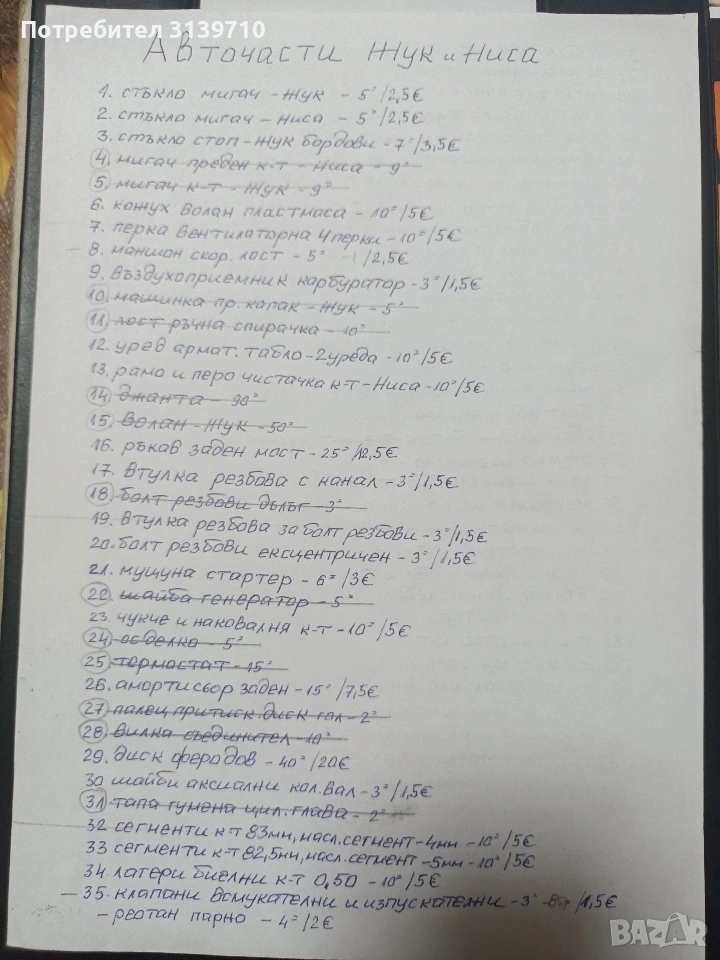 Потребител 3139710
Авточасти Жук и Ниса
1. стъкло мигач - Жук - 5лв/2,5€
2. стъкло мигач - Ниса - 5лв/2,5€
3. стъкло стоп - Жук бордови - 7лв/3,5€
4. мигач преден к-т - Ниса - 9лв
5. мигач к-т - Жук - 9лв
6. кожух волан пластмаса - 10лв/5€
7. перка вентилаторна 4 перки - 10лв/5€
- 8. маншон скор. лост - 5лв /2,5€
9. въздухоприемник карбуратор - 3лв/1,5€
10. машинка пр. капак - Жук - 5лв
11. лост ръчна спирачка - 10лв
12. уред армат. табло - 2 уреда - 10лв/5€
13. рамо и перо чистачка к-т - Ниса - 10лв/5€
14. джанта - 90лв
15. волан - Жук - 50лв
16. ръкав заден мост - 25лв/12,5€
17. втулка резбова с канал - 3лв/1,5€
18. болт резбови дълъг - 3лв
19. втулка резбова за болт резбови - 3лв/1,5€
20. болт резбови ексцентричен - 3лв/1,5€
21. муцуна стартер - 6лв/3€
22. шайба генератор - 5лв
23. чукче и наковалня к-т - 10лв/5€
24. - 5лв
25. термостат - 15лв
26. амортисьор заден - 15лв/7,5€
27. палец притиск. диск - 2лв
28. вилка съединител - 10лв
29. диск феродов - 40лв/20€
30 шайби аксиални кол. вал - 3лв/1,5€
31. тапа гумена цил. глава - 2лв
32 сегменти к-т 83мм, масл. сегмент - 4мм - 10лв/5€
33 сегменти к-т 82,5мм, масл. сегмент - 5мм - 10лв/5€
34. лагери биелни к-т 0,50 - 10лв/5€
- 35. клапани всмукателни и изпускателни - 3лв /1,5€
- реотан парно - 4лв/2€
BAZAR